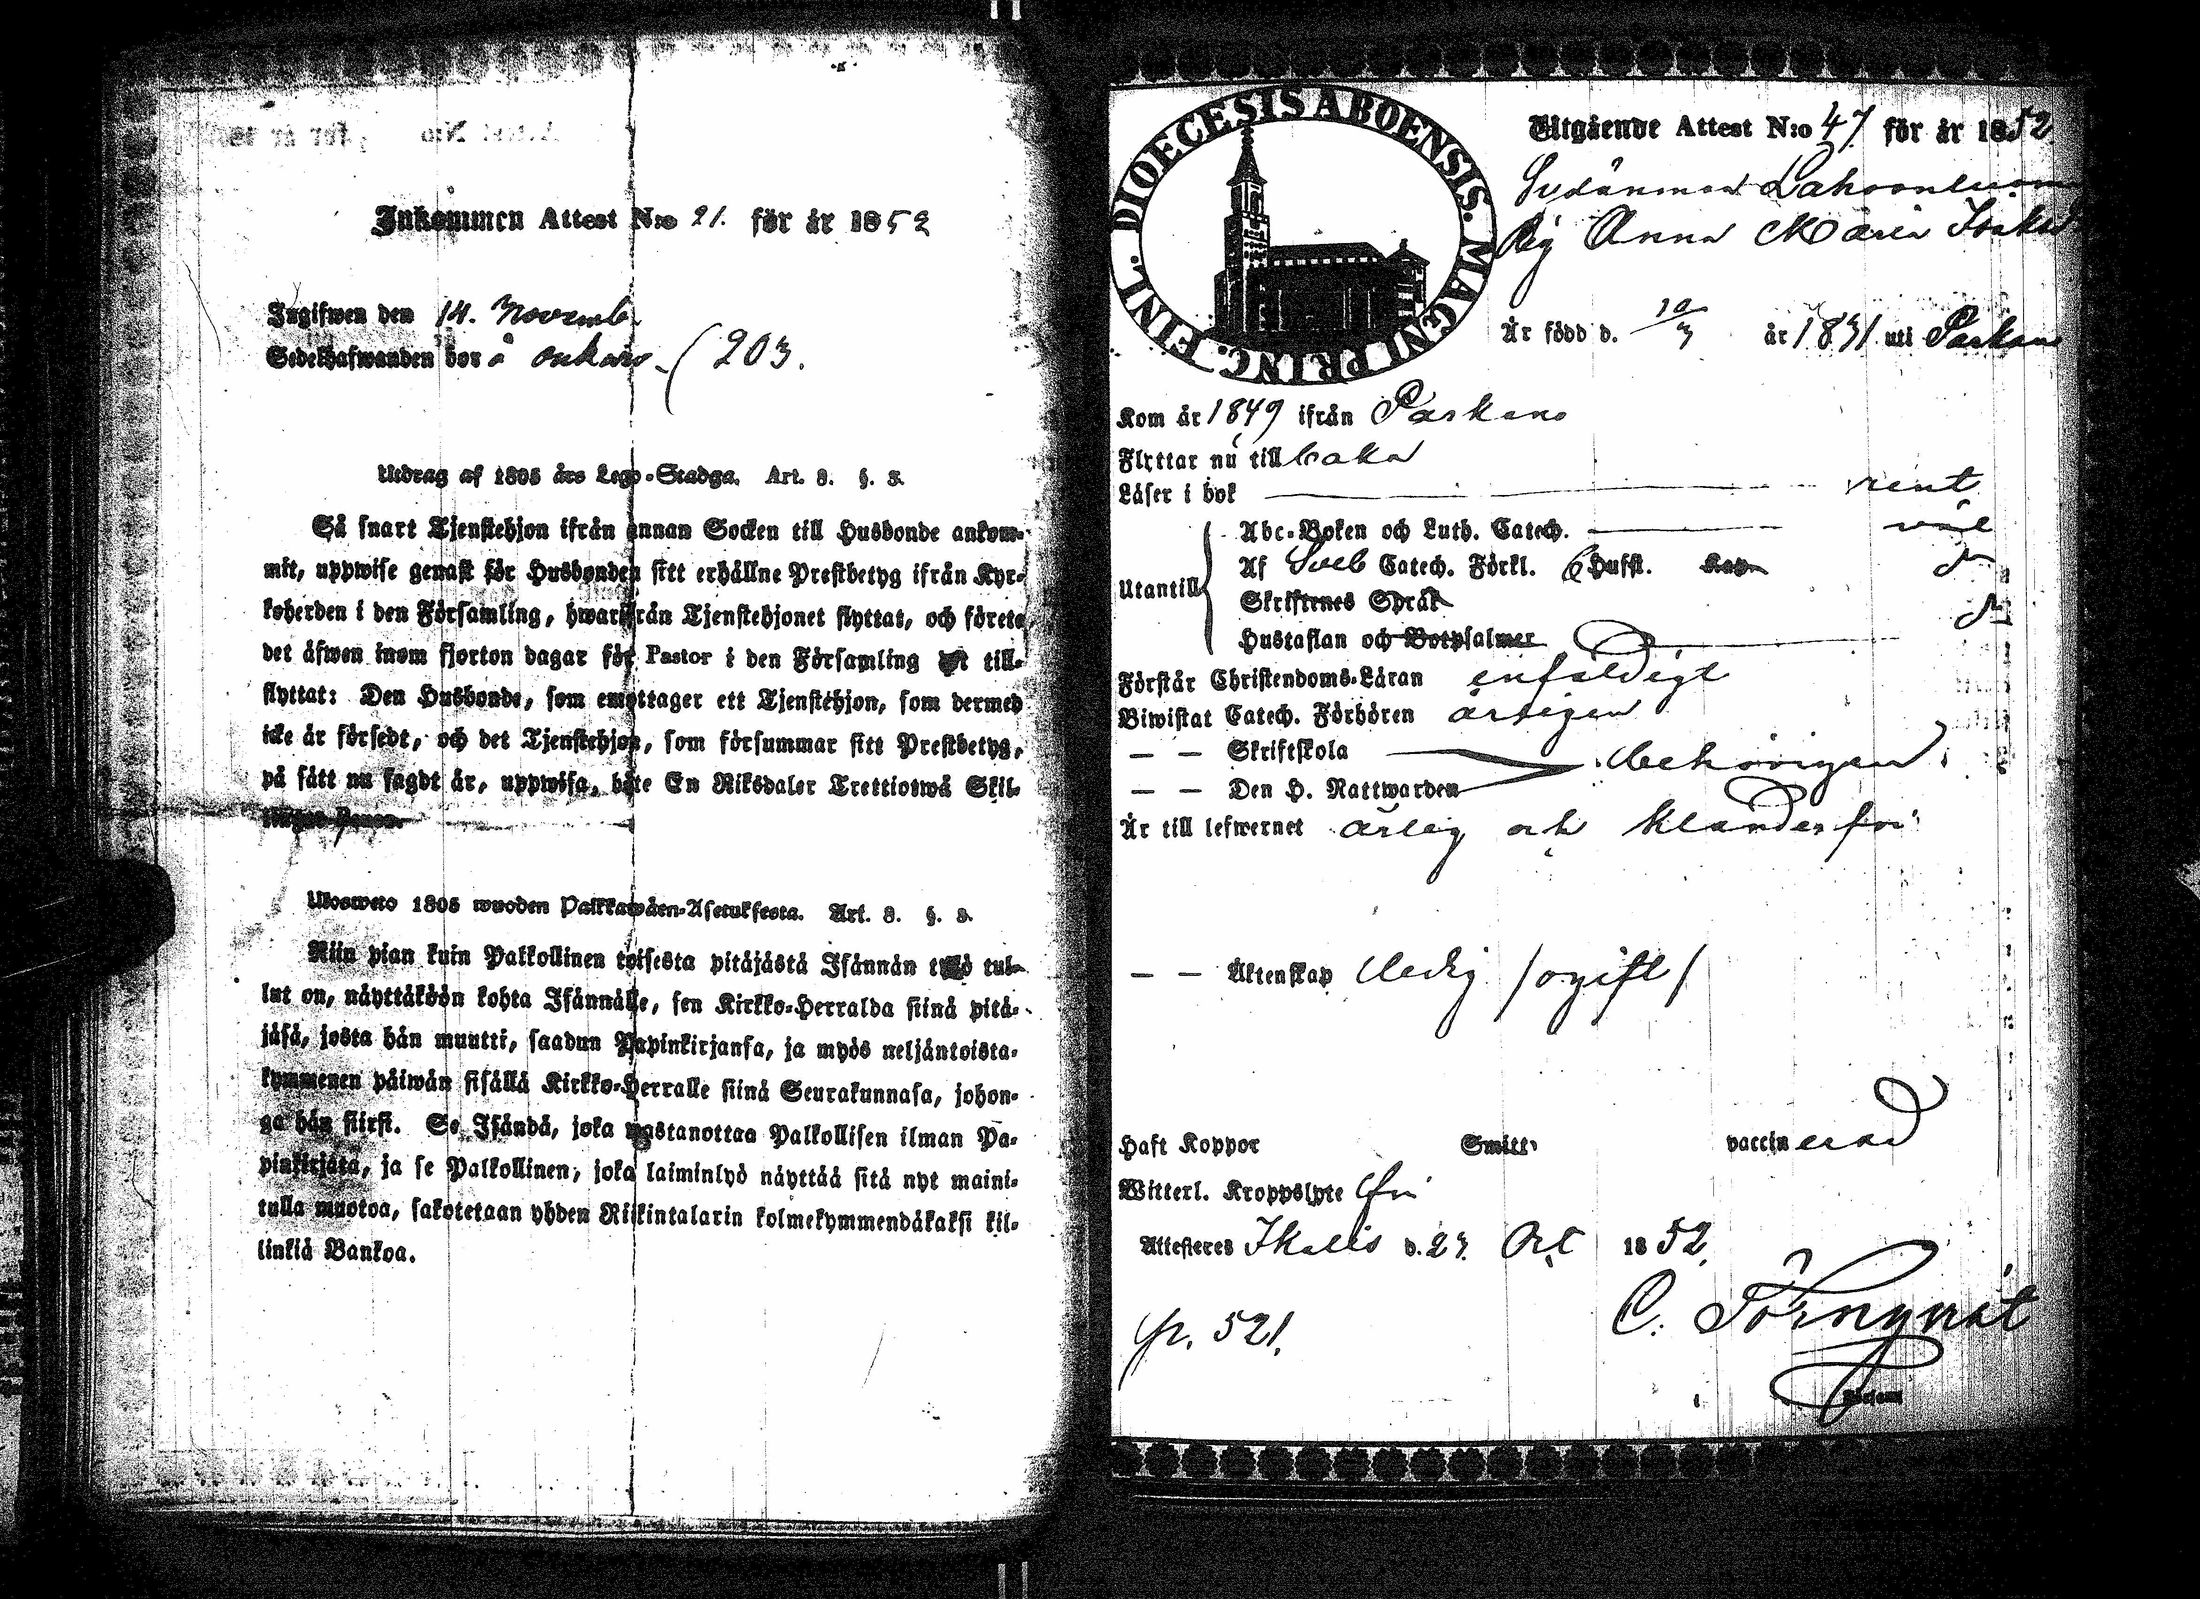 Inkommen Attest N:o 21. för år 1852
Ingifwen den 14. Novemb.
Sedelhafwanden bor å (203.
Utdrag af 1805 års Lego-Stadga. Art. 8. §. 3.
Så snart Tjenstehjon ifrån annan Socken till Husbonde ankom-
mit, uppwise genast för Husbonden sitt erhållne Prestbetyg ifrån Kyr-
koherden i den Församling, hwarifrån Tjenstehjonet flyttat, och förete
det äfwen inom fjorton dagar för Pastor i den Församling till-
flyttat: Den Husbonde, som emottager ett Tjenstehjon, som dermed
icke är försedt, och det Tjenstehjon, som försummar sitt Prestbetyg,
på sätt nu sagdt är, uppwisa, böte En Riksdaler Trettiotwå Skil-
Ulosweto 1805 wuoden Palkkawäen-Asetuksesta. Art. 8. §. 3.
Niin pian kuin Palkollinen toisesta pitäjästä Isännän tul-
lut on, näyttäköön kohta Isännälle, sen Kirkko-Herralda siinä pitä-
jäsä, josta hän muutti, saadun Papinkirjansa, ja myös neljäntoista-
kymmenen päiwän sisällä Kirkko-Herralle siinä Seurakunnasa, johon-
ga hän siirsi. Se Isändä, joka wastanottaa Palkollisen ilman Pa-
pinkirjata, ja se Palkollinen, joka laiminlyö näyttää sitä nyt maini-
tulla muotoa, sakotetaan yhden Riikintalarin kolmekymmendäkaksi kil-
linkiä Bankoa.
DIOECESIS ABOENSIS. MAGNI PRINC. FINL.
Utgående Attest N:o 47 för år 1852
Pig Anna Maria
Är född d. 10/3 år 1831 uti Parkano
Kom år 1849 ifrån Parkano
Flyttar nu till baka
Läser i bok rent
Utantill
Abc-Boken och Luth. Catech. wäl
Af Sveb Catech. Förkl. 6 Hufst. Kap.
Skriftenes Språk
Hustaflan och Botpsalmer
Förstår Christendoms-Läran enfaldigt
Biwistat Catech. Förhören årligen
— — Skriftskola behörigen
— — Den H. Nattwarden
Är till lefwernet ärlig och klanderfri
— — Äktenskap ledig /ogift/
Haft Koppor Smitt. vaccinerad
Witterl. Kroppslyte fri
Attesteres Ikalis d. 23. Oct 1852.
C. Törnqvist
p. 521.